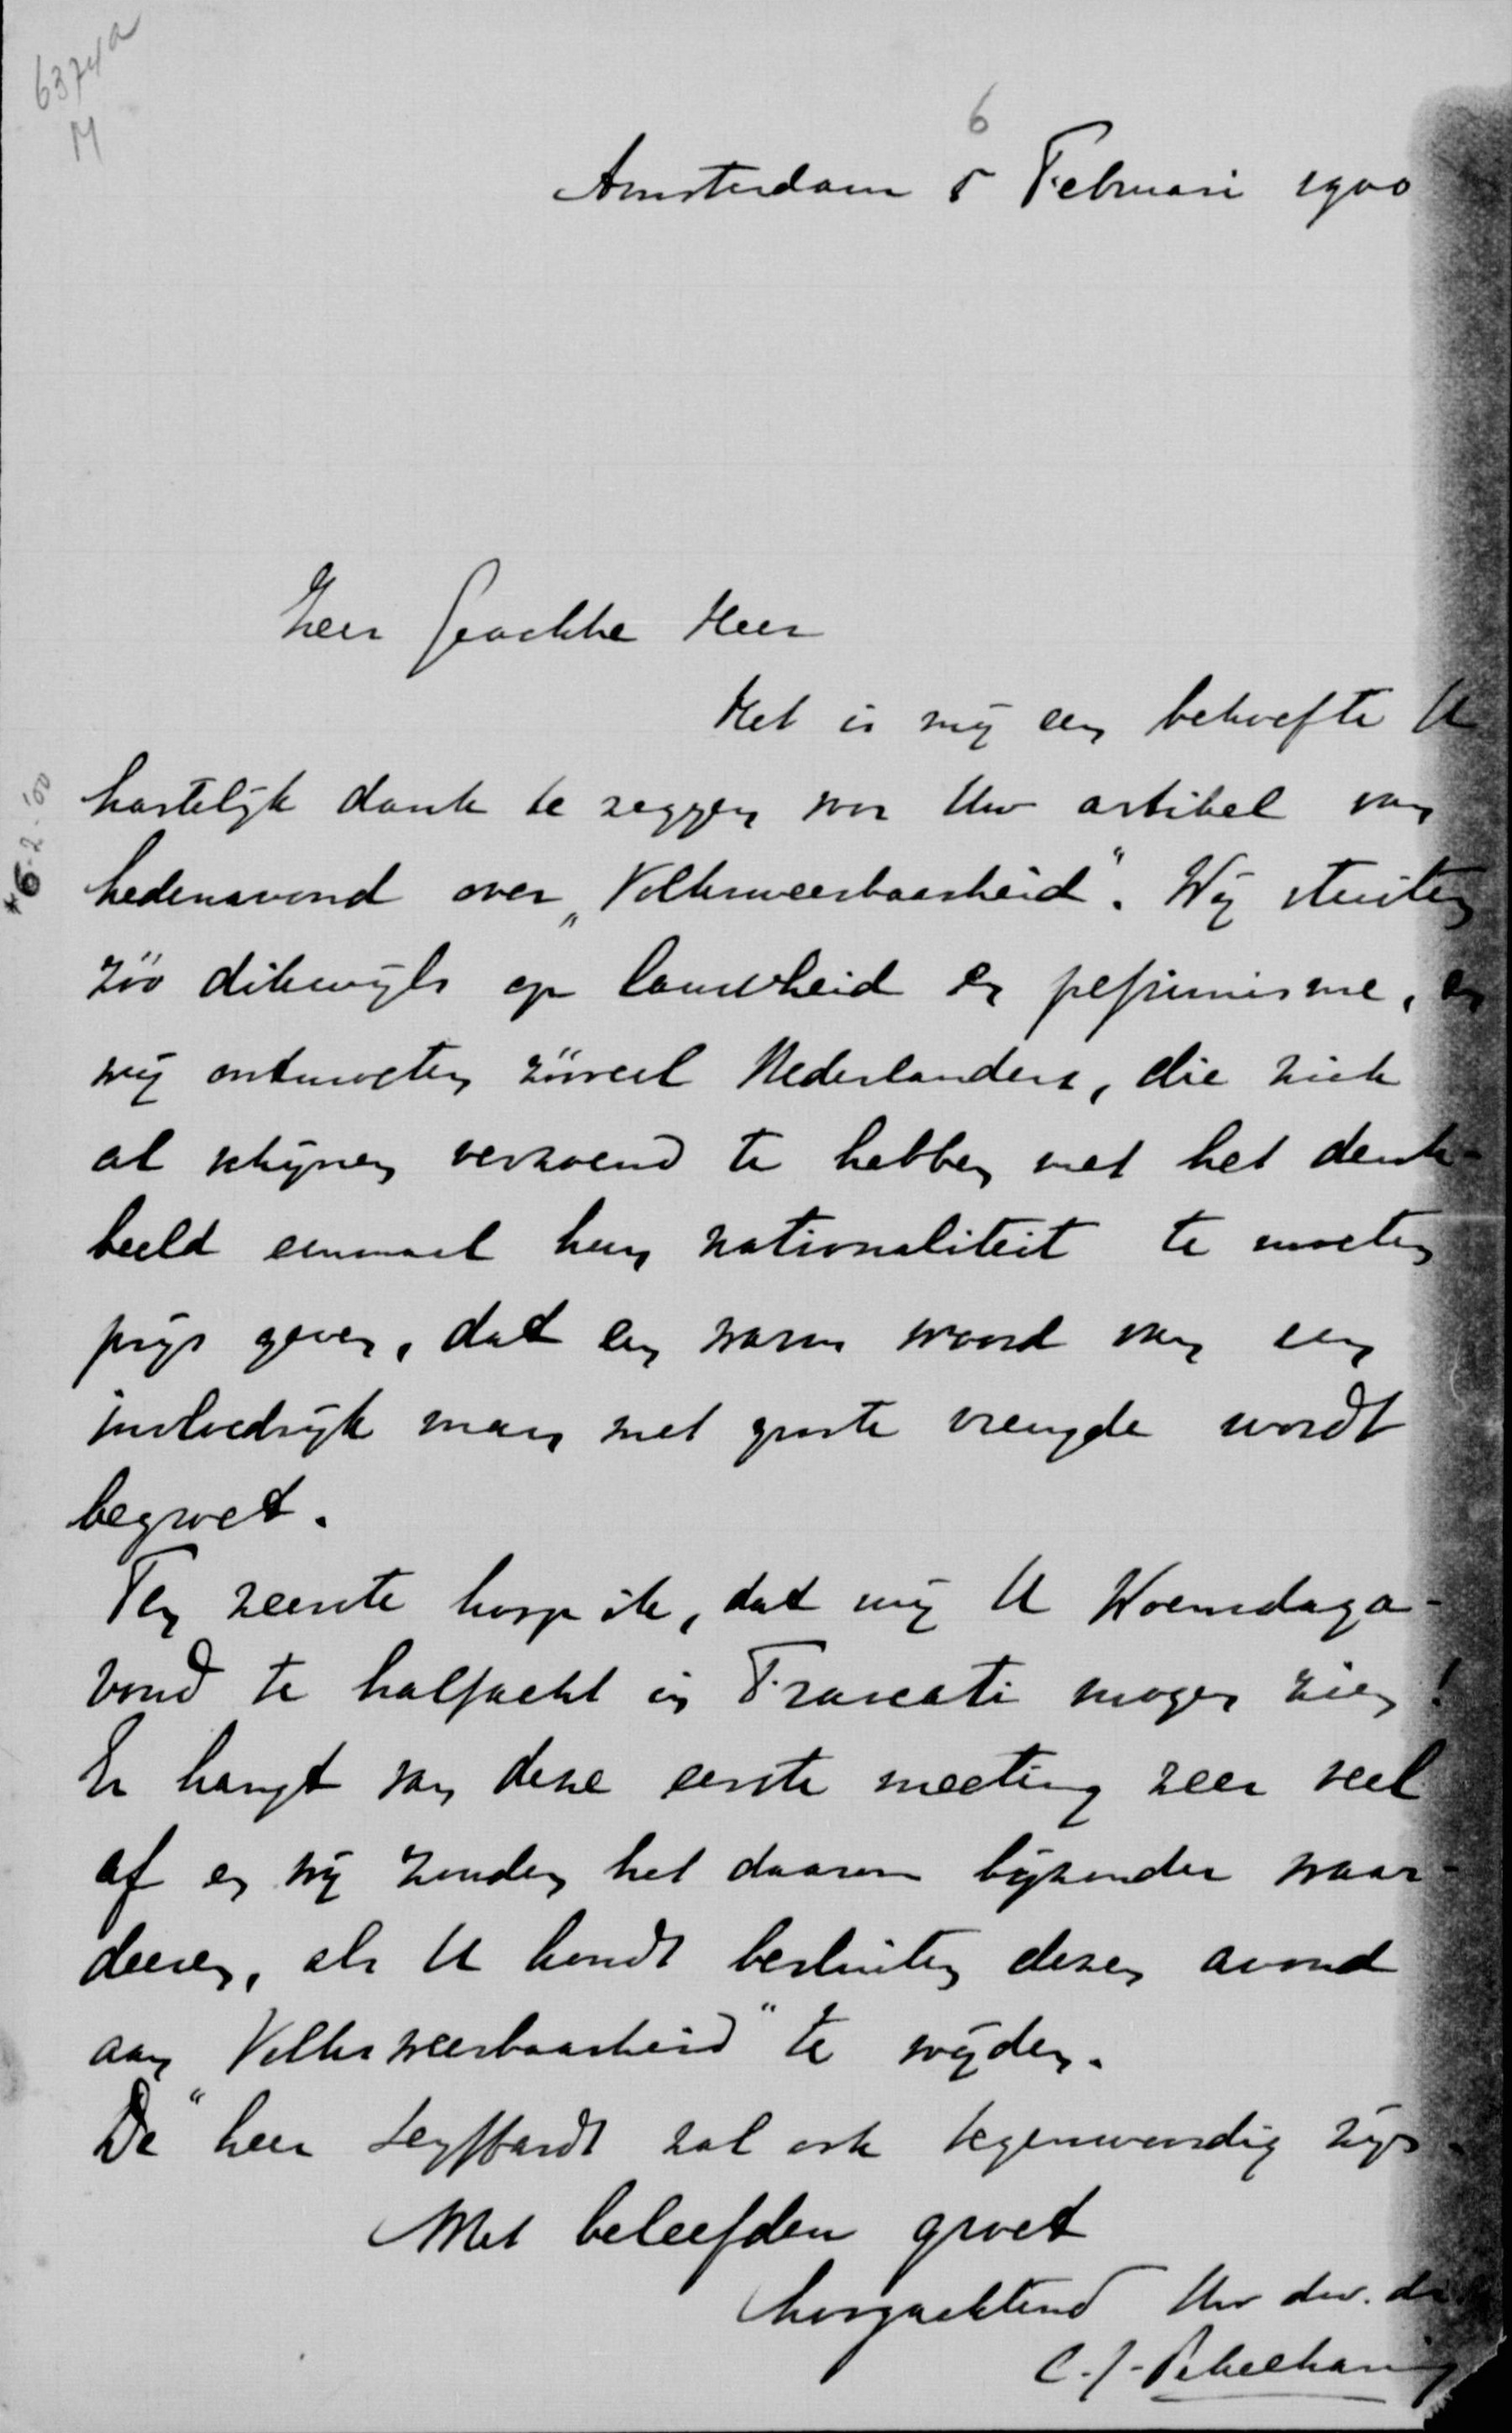 6374a
M
6
Amsterdam 5 Februari 1900
Zeer Geachte Heer
Het is mij een behoefte U
hartelijk dank te zeggen voor Uw artikel van
hedenavond over „Volksweerbaarheid". Wij stuiten
zóó dikwijls op lauwheid en pessimisme, en
wij ontmoeten zóóveel Nederlanders, die zich
al schijnen verzoend te hebben met het denk-
beeld eenmaal hun nationaliteit te moeten
prijs geven, dat een warm woord van een
invloedrijk man met groote vreugde wordt
begroet.
Ten zeerste hoop ik, dat wij U Woensdaga-
vond te halfacht in Frascati mogen zien!
Er hangt van deze eerste meeting zeer veel
af en wij zouden het daarom bijzonder waar-
deeren, als U kondt besluiten dezen avond
aan „Volksweerbaarheid" te wijden.
De heer Seyffardt zal ook tegenwoordig zijn.
Met beleefden groet
hoogachtend Uw dw. dr
C.J.
6-2-'00